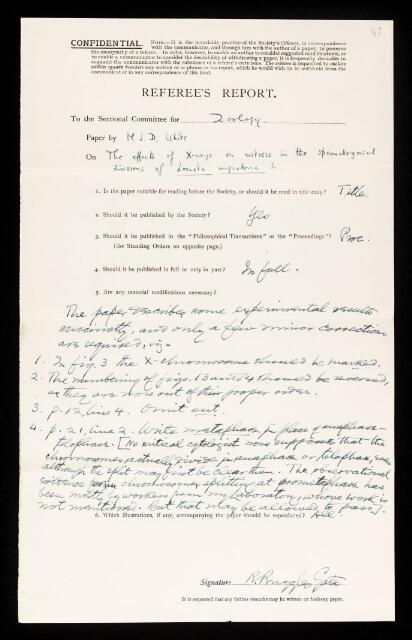 47
CONFIDENTIAL. NOTE.—It is the invariable practice of the Society's Officers, in correspondence
with the communicator, and through him with the author of a paper, to preserve
the anonymity of a referee. In order to enable an author to consider suggested modifications, or
to enable a communicator to consider the desirability of withdrawing a paper, it is frequently desirable to
acquaint the communicator with the substance of a referee's criticisms. The referee is requested to enclose
within square brackets any section or phrase in his report, which he would wish to be withheld from the
communicator in any correspondence of this kind.
REFEREE'S REPORT.
To the Sectional Committee for Zoology.
Paper by M J D. White
On The effects of X-rays on mitosis in the spermatogonial
divisions of Locusta migratoria L
1. Is the paper suitable for reading before the Society, or should it be read in title only? Title.
2. Should it be published by the Society? Yes
3. Should it be published in the "Philosophical Transactions" or the "Proceedings"? Proc.
(See Standing Orders on opposite page.)
4. Should it be published in full or only in part? In full.
5. Are any material modifications necessary?
The paper describes some experimental results
succinctly, and only a few minor corrections
are required, viz-
1. In fig. 3 the X-chromosome should be marked.
2. The numbering of figs. 13 and 14 should be reversed,
as they are now out of their proper order.
3. p. 12, line 4. Omit out.
4. p. 21, line 2. Write metaphase in place of anaphase-
telophase. [No critical cytologist now supposes that the
chromosomes actually divide in anaphase or telophase, even
although the split may first be clear then. The observational
evidence for chromosomes splitting at prometaphase has
been mostly by workers from my laboratory, whose work is
not mentioned. But that may be allowed to pass].
6. Which illustrations, if any, accompanying the paper should be reproduced? All
Signature R. Ruggles Gates
It is requested that any further remarks may be written on foolscap paper.